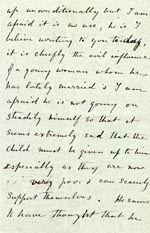 up unconditionally but I am
afraid it is no use, he is I
believe writing to you today,
it is chiefly the evil influence
of a young woman whom he
has lately married & I am
afraid he is not going on
steadily himself so that it
seems extremely sad that the
child must be given up to him
especially as they are now
very poor & can scarcely
support themselves. He seems
to have thought that he